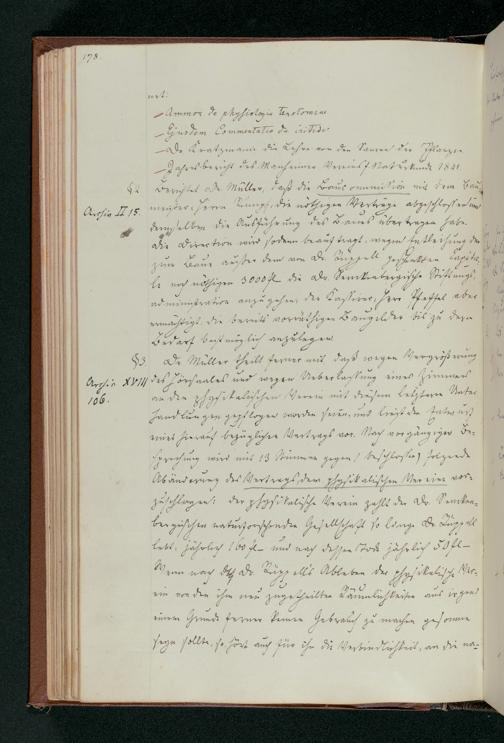 178.
net:
– Ammon de physiologia tenotomiae
– Ejusdem Commentatio de iritide
– Dr. Kratzmann die Lehre von den Samen der Pflanzen
– Jahresbericht des Manheimer Vereins f. Naturkunde 1841.
§2. Berichtet Dr. Müller, daß die Baucommission mit dem Bau
Archiv II 15. meister, Herrn Rumpf, die nöthigen Verträge abgeschlossen und
demselben die Ausführung des Baues übertragen habe.
Die Direction wird sodann beauftragt, wegen Entleihung der
zum Bau außer dem von Dr. Rüppell geschenkten Capita-
le noch nöthigen 3000 fl. die Dr. Senckenbergische Stiftungs-
administration anzugehen, der Kassirer, Herr Pfeffel aber
ermächtigt, die bereits vorräthigen Baugelder bis zu dem
Bedarf bestmöglich anzulegen.
§3. Dr. Müller theilt ferner mit daß wegen Vergrößerung
Archiv XVIII des Hörsaales und wegen Ueberlassung eines Zimmers
106. an den physikalischen Verein mit diesem letzterer Unter-
handlungen gepflogen worden seien, und liest den Entwurf
eines hierauf bezüglichen Vertrags vor. Nach vorgängiger Be-
sprechung wird mit 13 Stimmen gegen 1 beschlossen, folgende
Abänderung des Vertrags dem physikalischen Verein vor-
zuschlagen: der physikalische Verein zahlt der Dr. Sencken-
bergischen naturforschenden Gesellschaft so lange Dr. Rüppell
lebt, jährlich fl – und nach dessen Tode jährlich 50 fl –
Wenn nach Dr. Rüppell's Ableben der physikalische Ver-
ein von den ihm neu zugetheilten Räumlichkeiten aus irgend
einem Grunde ferner keinen Gebrauch zu machen gesonnen
seyn sollte, so hört auch für ihn die Verbindlichkeit, an die na-